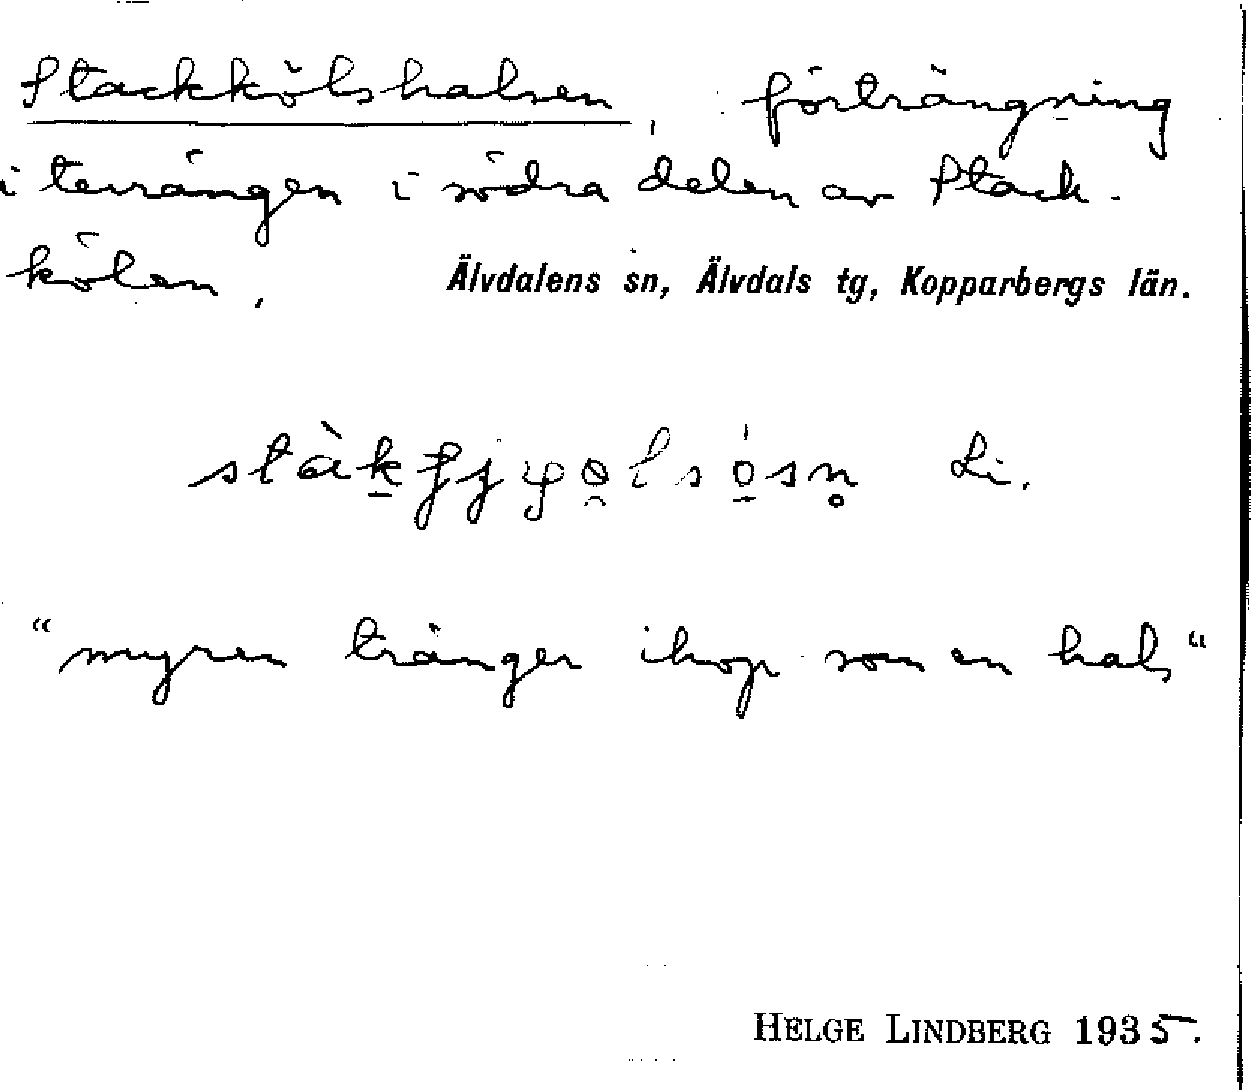 Stackkölshalsen, förträngning
i terrängen i södra delen av Stack-
kölen.
Älvdalens sn, Älvdals tg, Kopparbergs län.
Li.
"myren tränger ihop som en hals"
HELGE LINDBERG 1935.